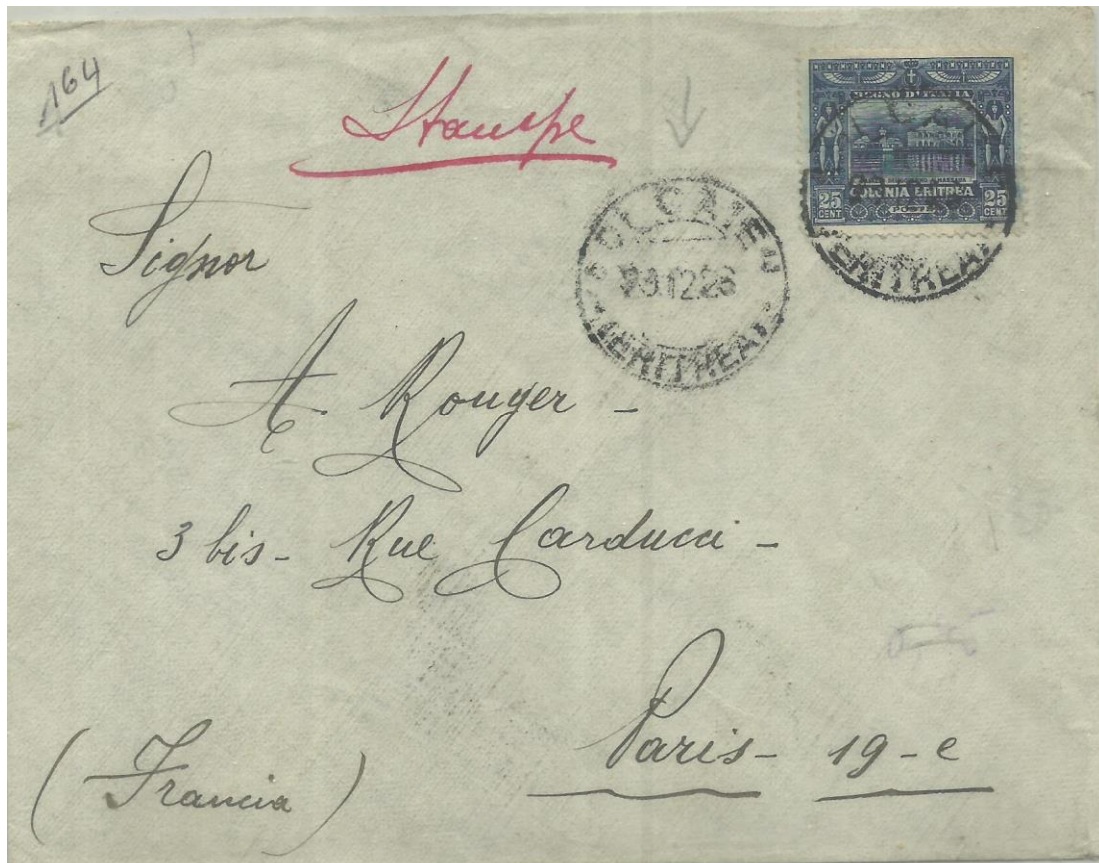 164
Stampe
REGNO D'ITALIA
COLONIA ERITREA
25 CENT
POSTE
25 CENT
23.12.26
(ERITREA)
(ERITREA)
Signor
A Rouyer -
3 bis - Rue Carducci -
Paris - 19 - e
(Francia)